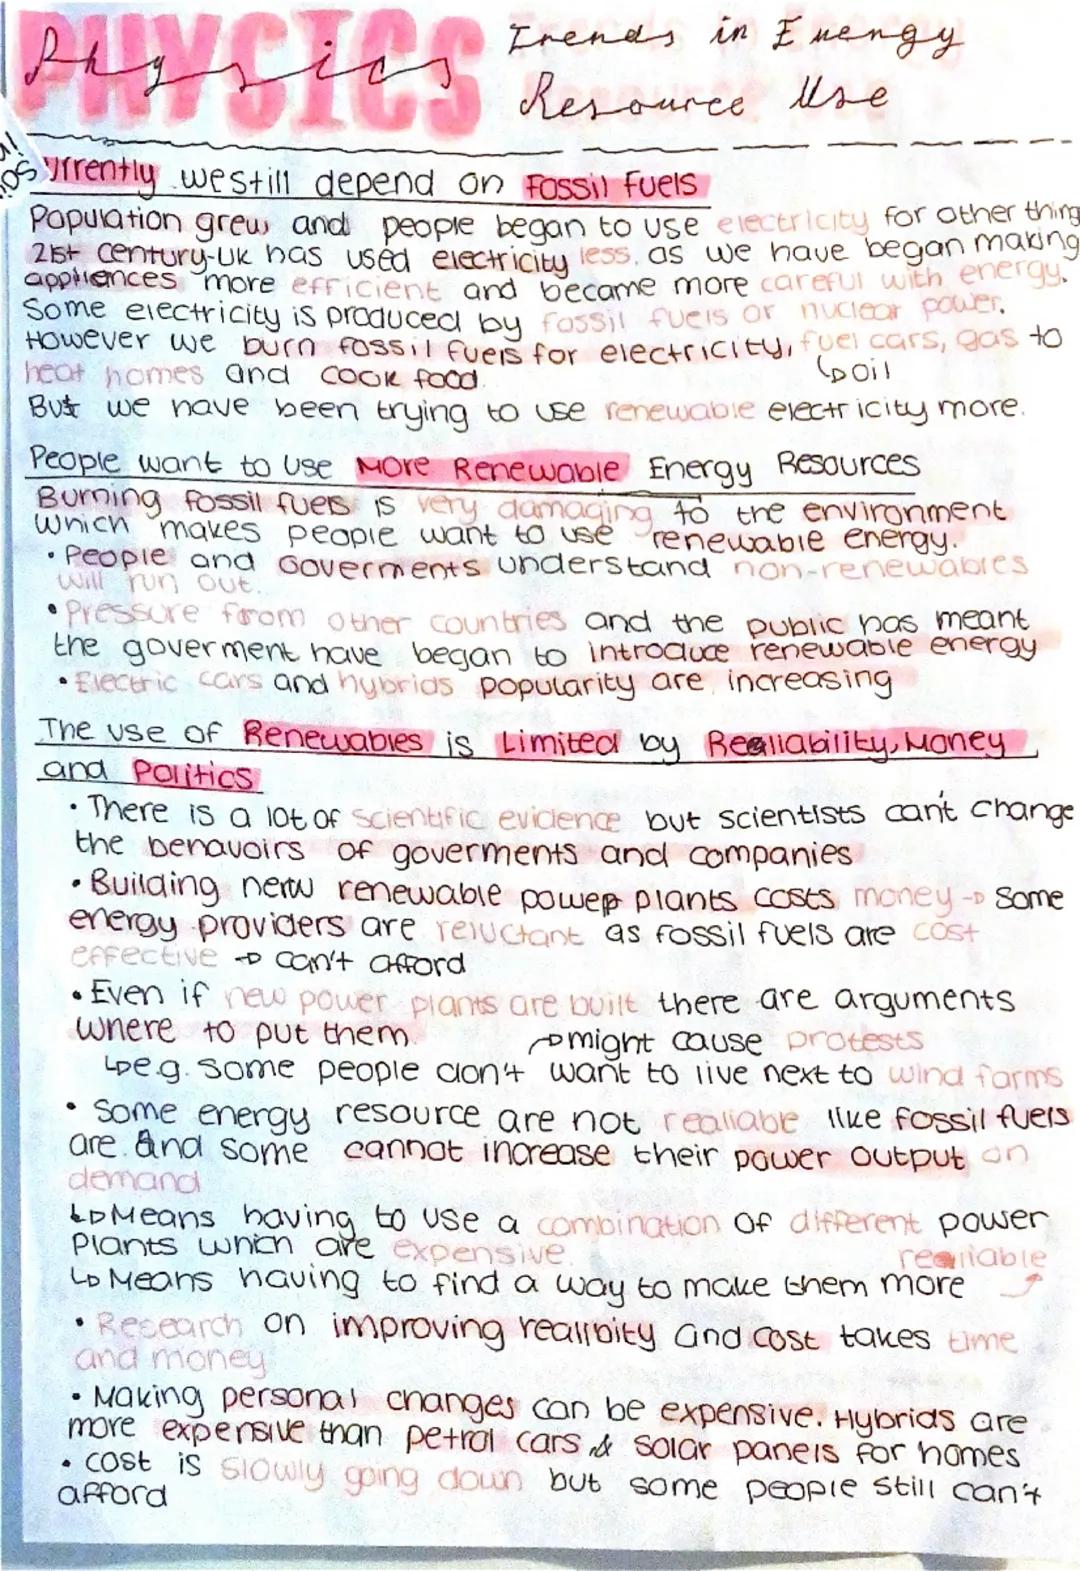 PHYSICS
Physics
Trends in Energy
Resource Use
urrently we still depend on Fossil Fuels
Population grew and people began to use electricity for other thing
21st century-UK has used electricity less. as we have began making
appliences more efficient and became more careful with energy.
Some electricity is produced by fossil fuels or nuclear power.
However we burn fossil fuels for electricity, fuel cars, gas to
heat homes and cook food.
↳oil
But we have been trying to use renewable electricity more.
People want to use More Renewable Energy Resources
Burning fossil fuels is very damaging to the environment
which makes people want to use renewable energy.
• People and Goverments understand non-renewables
will run out.
• Pressure from other countries and the public has meant
the goverment have began to introduce renewable energy
• Electric cars and hybrids popularity are increasing
The use of Renewables is Limited by Realiability, Money
and Politics
• There is a lot of scientific evidence but scientists can't change
the behavoirs of goverments and companies
• Building new renewable power plants costs money → Some
energy providers are reluctant as fossil fuels are cost
effective → can't afford
• Even if new power plants are built there are arguments
where to put them
→might cause protests
↳e.g. some people don't want to live next to wind farms
• Some energy resource are not realiable like fossil fuels
are. And some cannot increase their power output on
demand
↳Means having to use a combination of different power
plants which are expensive.
realiable
↳ Means having to find a way to make them more
• Research on improving realibity and cost takes time
and money
• Making personal changes can be expensive. Hybrids are
more expensive than petrol cars & solar panels for homes
• cost is slowly going down but some people still can't
afford